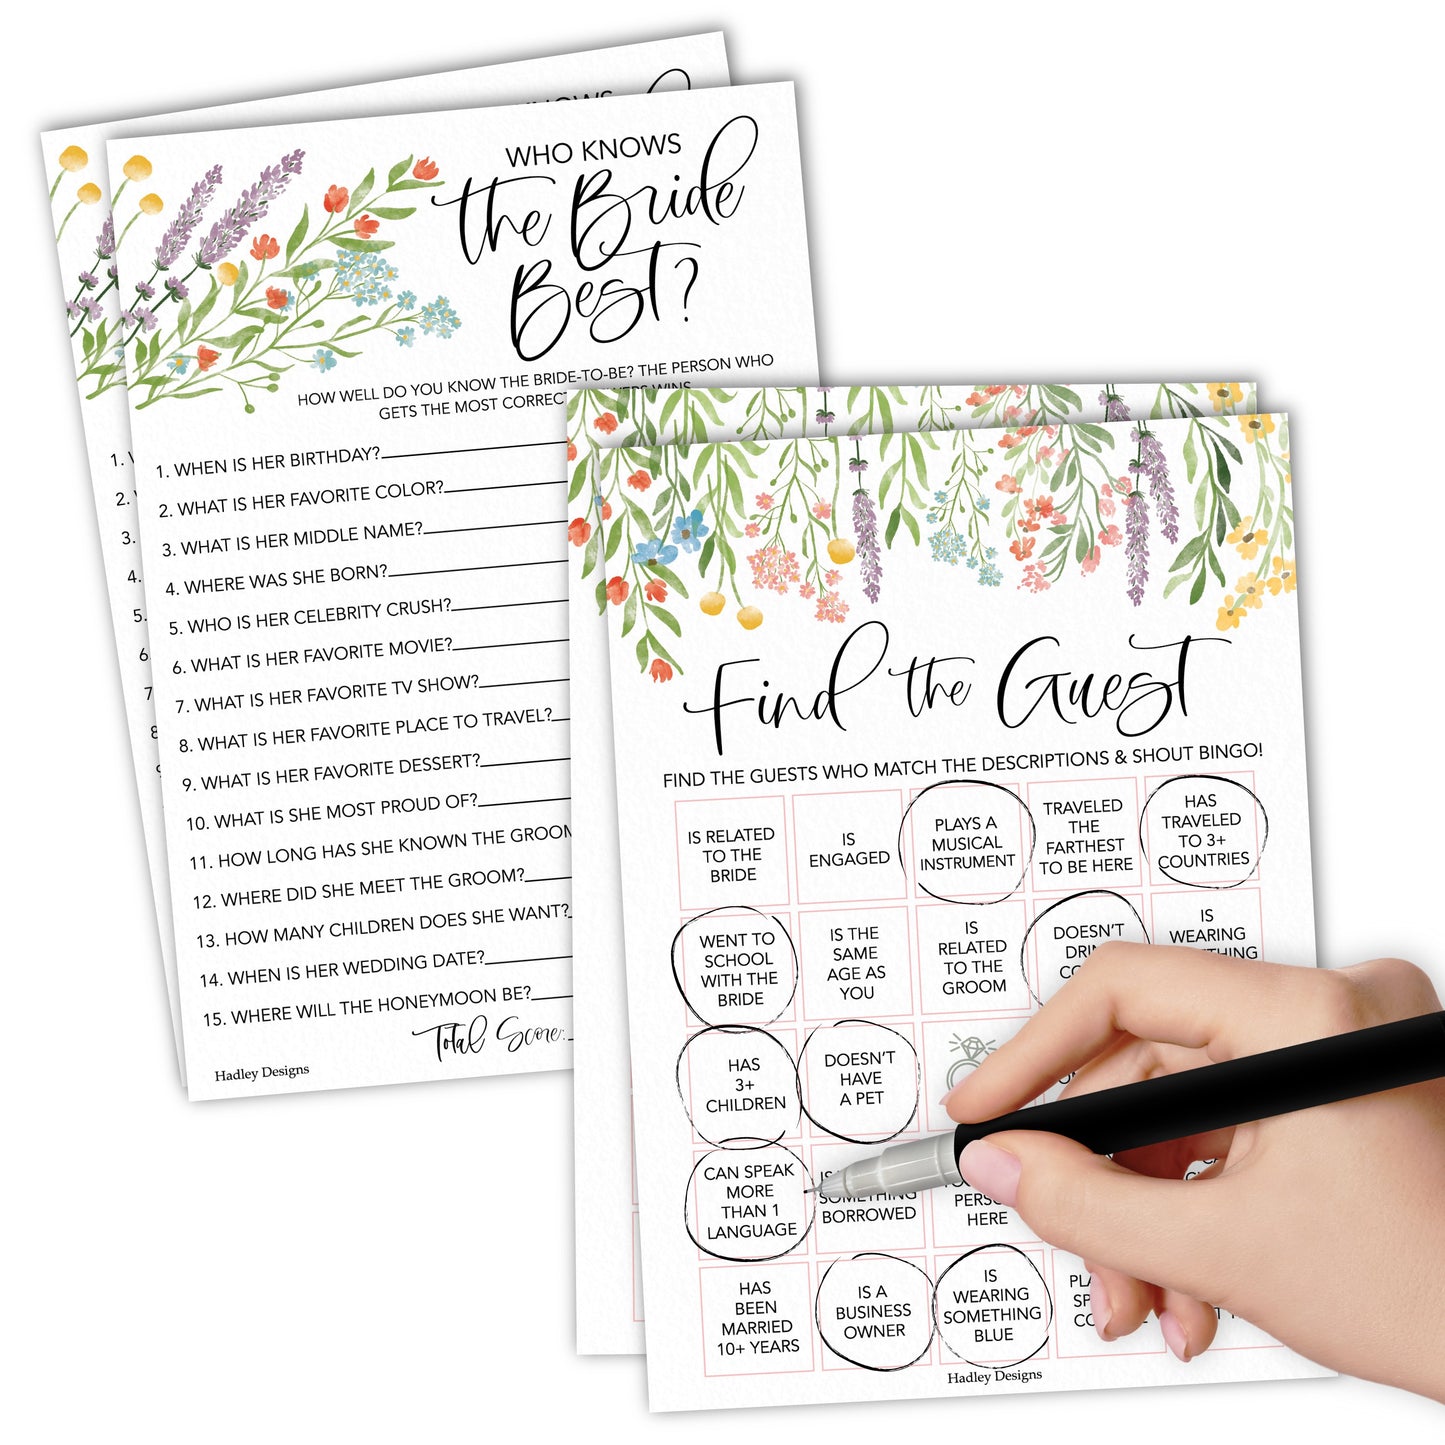 WHO KNOWS
the Bride
Best?
HOW WELL DO YOU KNOW THE BRIDE-TO-BE? THE PERSON WHO
GETS THE MOST CORRECT WINS
1. WHEN IS HER BIRTHDAY?
2. WHAT IS HER FAVORITE COLOR?
3. WHAT IS HER MIDDLE NAME?
4. WHERE WAS SHE BORN?
5. WHO IS HER CELEBRITY CRUSH?
6. WHAT IS HER FAVORITE MOVIE?
7. WHAT IS HER FAVORITE TV SHOW?
8. WHAT IS HER FAVORITE PLACE TO TRAVEL?
9. WHAT IS HER FAVORITE DESSERT?
10. WHAT IS SHE MOST PROUD OF?
11. HOW LONG HAS SHE KNOWN THE GROOM
12. WHERE DID SHE MEET THE GROOM?
13. HOW MANY CHILDREN DOES SHE WANT?
14. WHEN IS HER WEDDING DATE?
15. WHERE WILL THE HONEYMOON BE?
Total Score:
Hadley Designs
Find the Guest
FIND THE GUESTS WHO MATCH THE DESCRIPTIONS & SHOUT BINGO!
IS RELATED
TO THE
BRIDE
IS
ENGAGED
PLAYS A
MUSICAL
INSTRUMENT
TRAVELED
THE
FARTHEST
TO BE HERE
HAS
TRAVELED
TO 3+
COUNTRIES
WENT TO
SCHOOL
WITH THE
BRIDE
IS THE
SAME
AGE AS
YOU
IS
RELATED
TO THE
GROOM
DOESN'T
IS
WEARING
HAS
3+
CHILDREN
DOESN'T
HAVE
A PET
CAN SPEAK
MORE
THAN 1
LANGUAGE
SOMETHING
BORROWED
HERE
HAS
BEEN
MARRIED
10+ YEARS
IS A
BUSINESS
OWNER
IS
WEARING
SOMETHING
BLUE
Hadley Designs